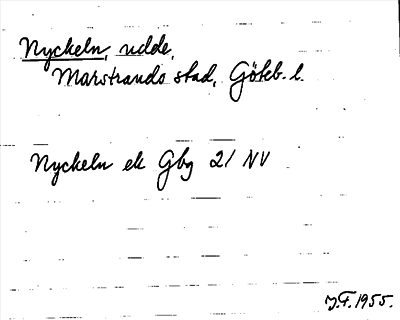 Nyckeln, udde,
Marstrands stad, Göteb. l.
Nyckeln ek Gbg 21 NV
J.F. 1955.